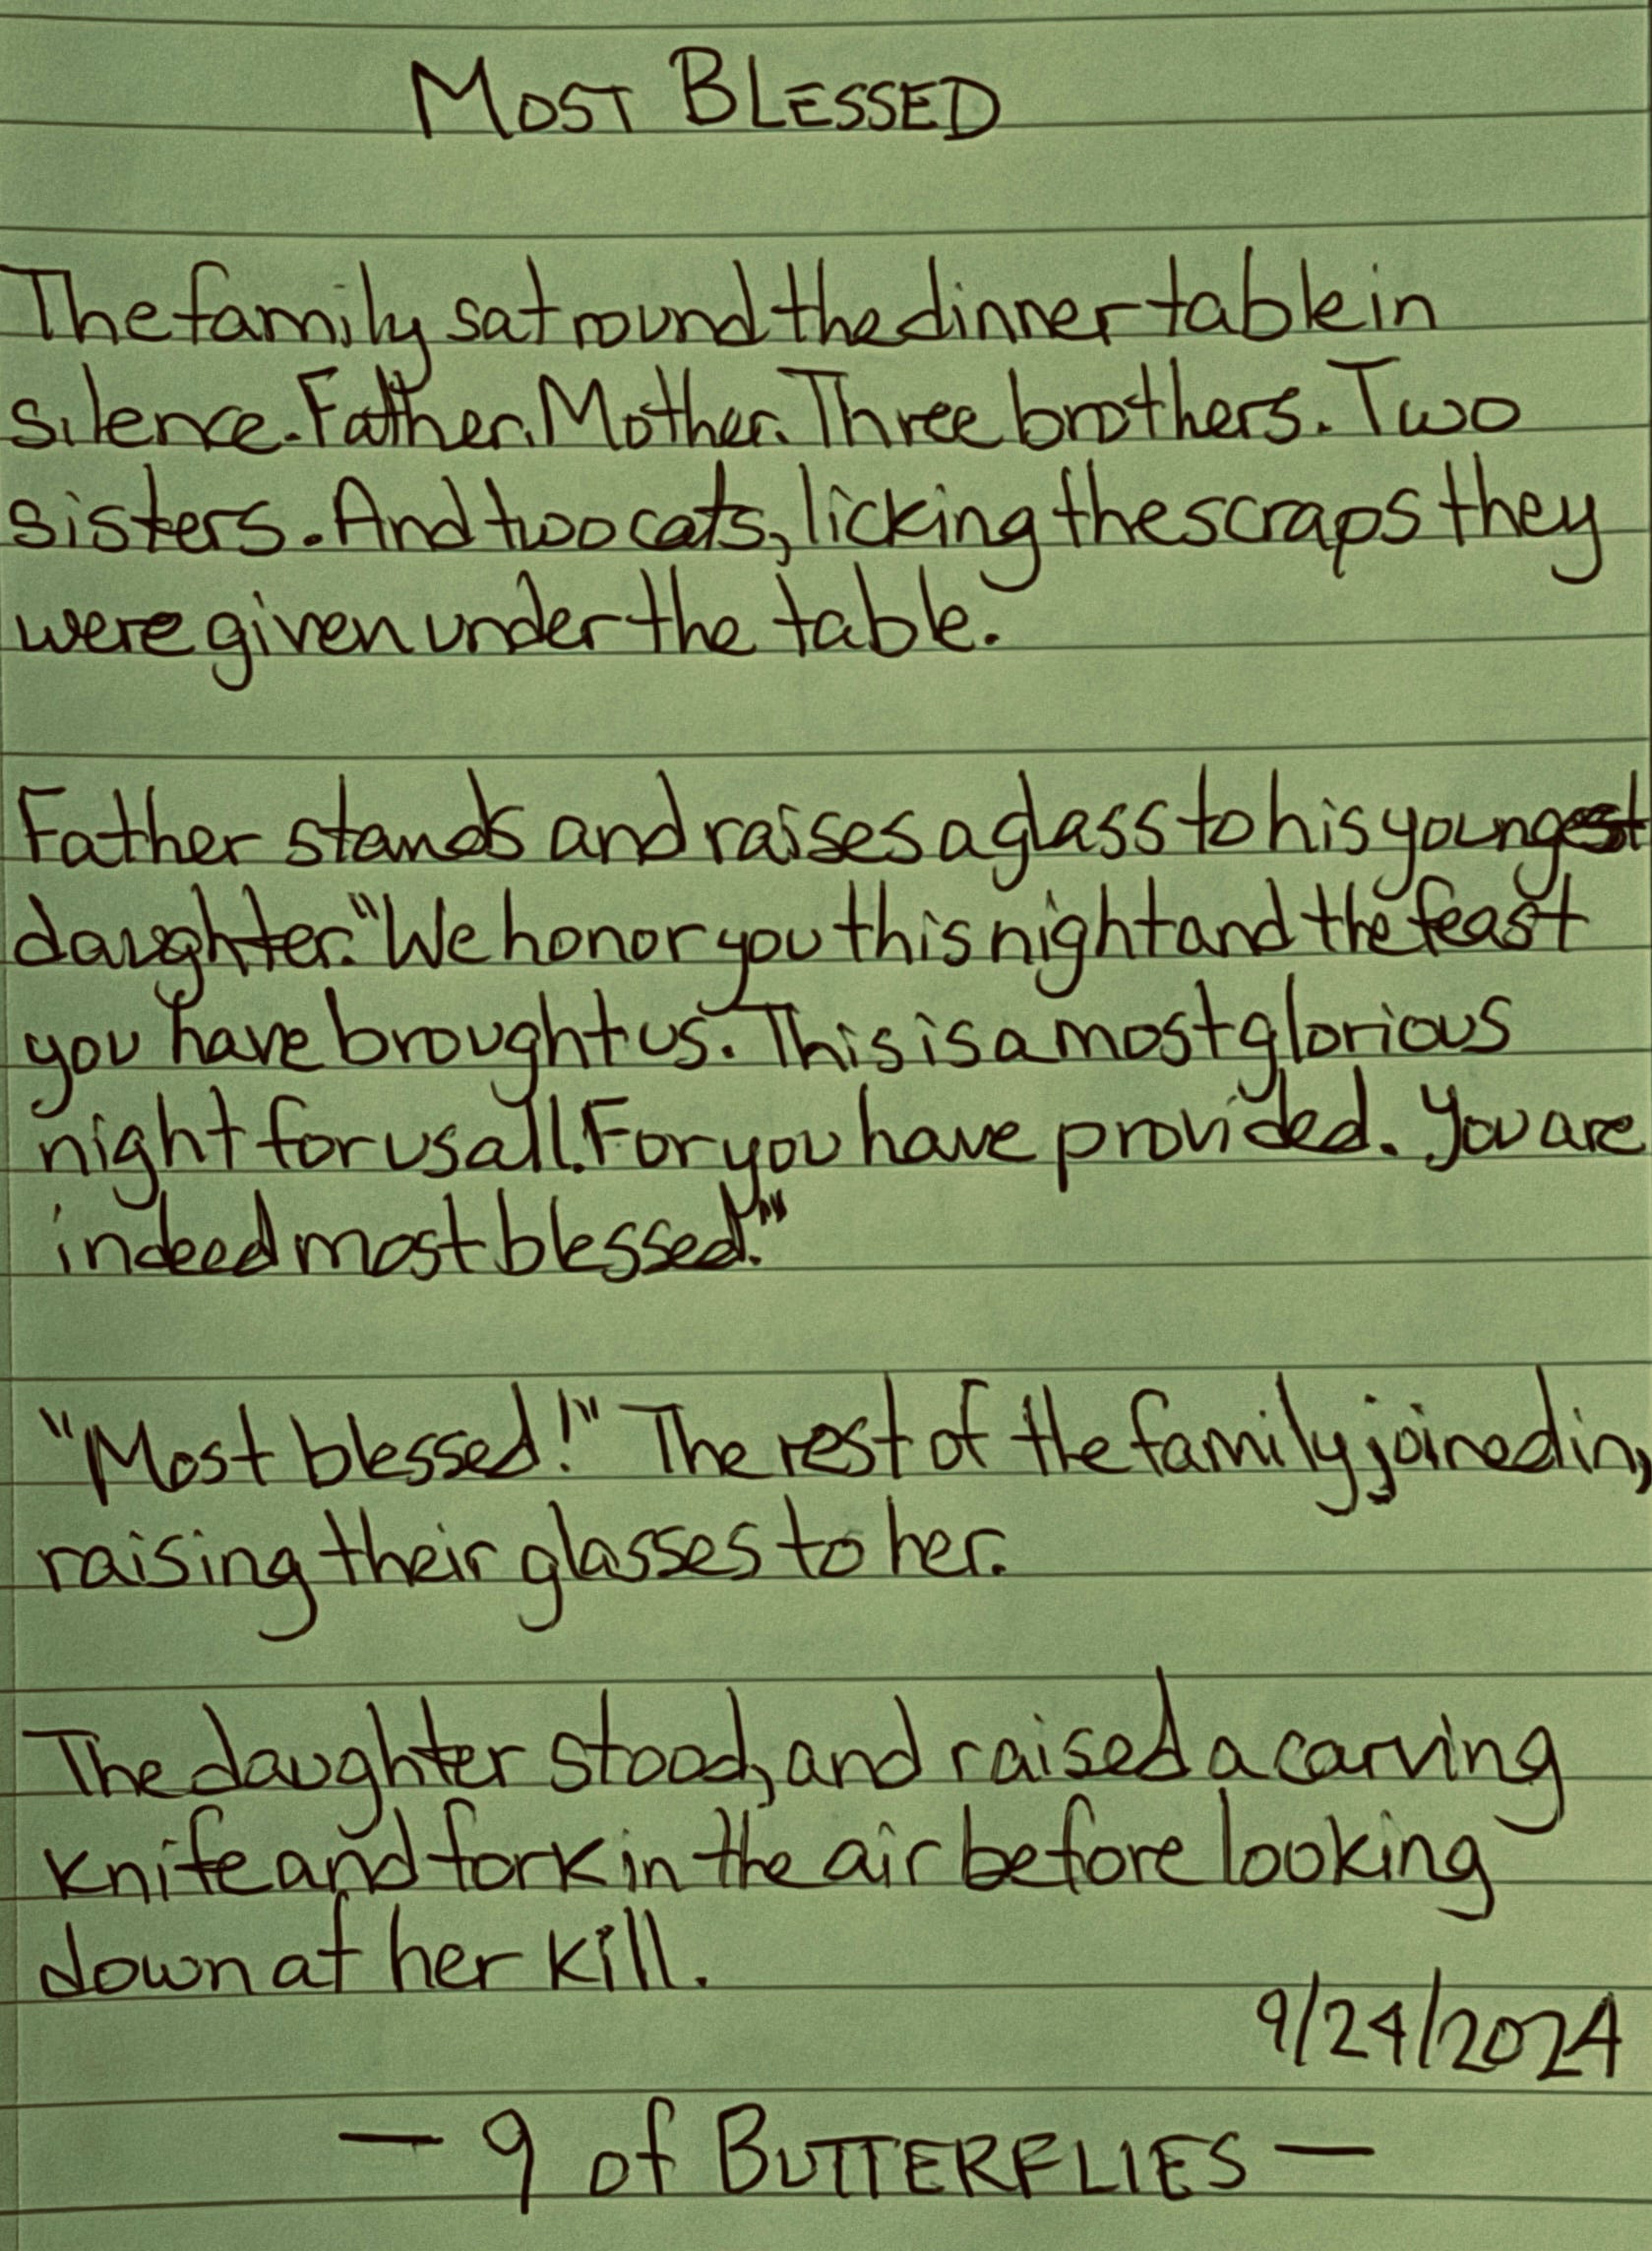 MOST BLESSED
The family sat round the dinner table in
silence. Father. Mother. Three brothers. Two
sisters. And two cats, licking the scraps they
were given under the table.
Father stands and raises a glass to his youngest
daughter. "We honor you this night and the feast
you have brought us. This is a most glorious
night for us all. For you have provided. You are
indeed most blessed."
"Most blessed!" The rest of the family joined in,
raising their glasses to her.
The daughter stood, and raised a carving
knife and fork in the air before looking
down at her kill.
9/24/2024
— 9 of BUTTERFLIES —